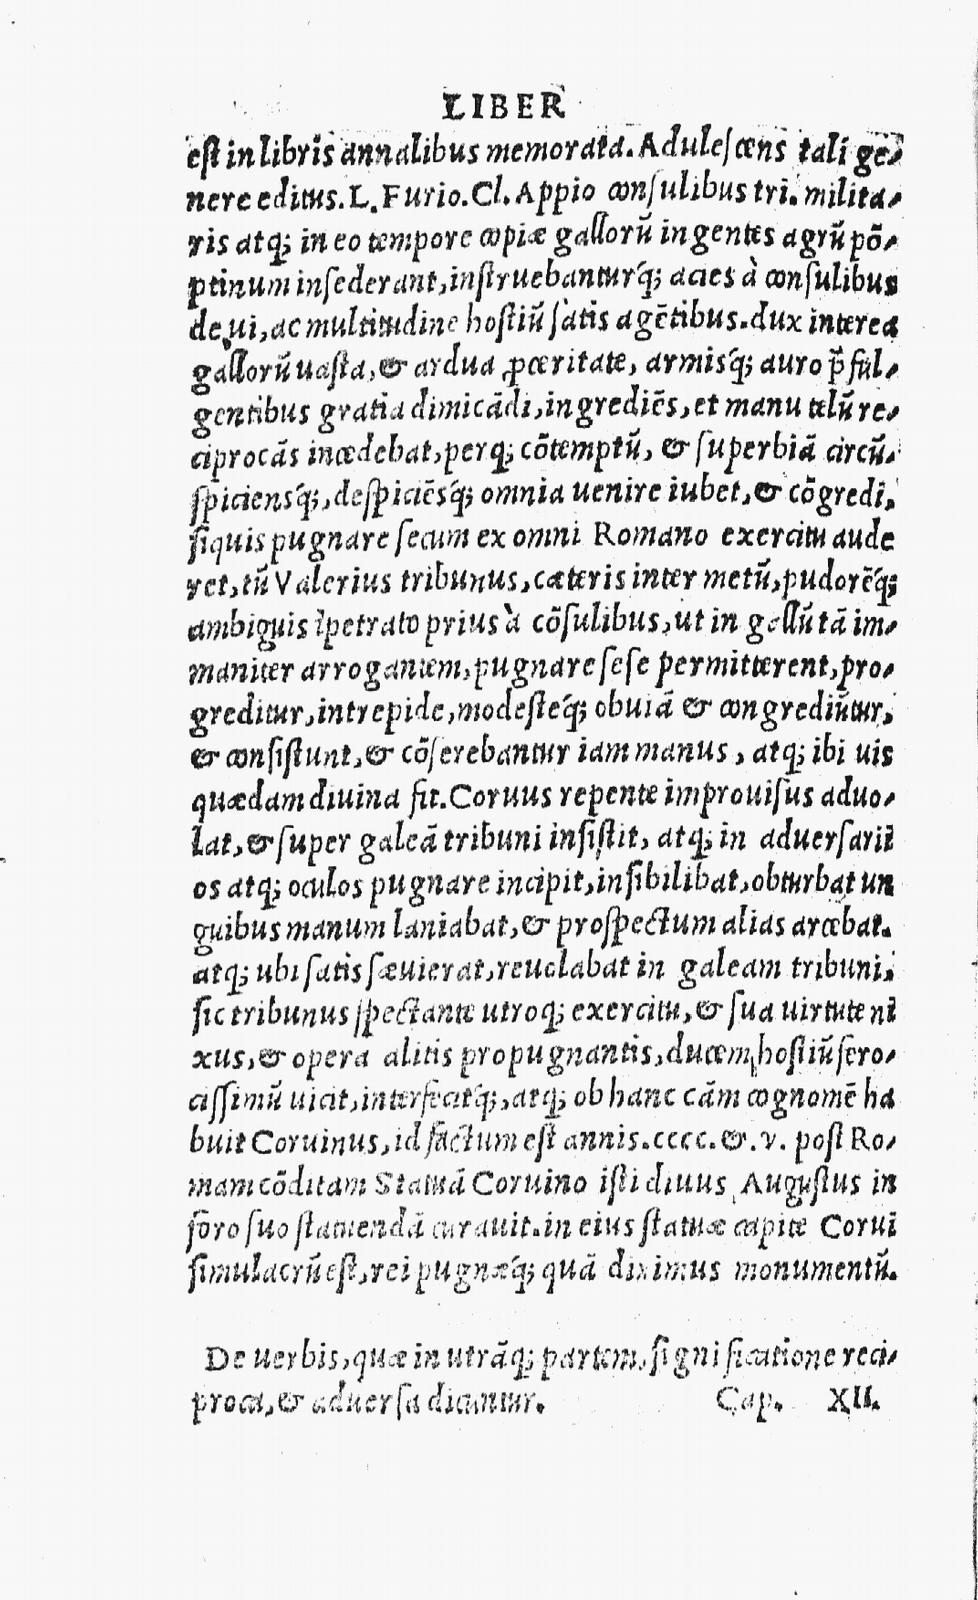 LIBER
est in libris annalibus memorata. Adulescens tali ge-
nere editus. L. Furio. Cl. Appio consulibus tri. milita-
ris atq; in eo tempore copiæ gallorũ ingentes agrũ põ-
ptinum insederant, instruebanturq́; acies à consulibus
de ui, ac multitudine hostiũ satis agẽtibus. dux interea
gallorũ uasta, & ardua ꝓceritate, armisq́; auro p̃ful-
gentibus gratia dimicãdi, ingrediẽs, et manu telũ re-
ciprocãs incedebat, perq; cõtemptũ, & superbiã circũ-
spiciensq́;, despiciẽsq́; omnia uenire iubet, & cõgredi,
siquis pugnare secum ex omni Romano exercitu aude
ret, tũ Valerius tribunus, cæteris inter metũ, pudorẽq́;
ambiguis ĩpetrato prius à cõsulibus, ut in gallũ tã im-
maniter arrogantem, pugnare sese permitterent, pro-
greditur, intrepide, modesteq́; obuiã & congrediũtur,
& consistunt, & cõserebantur iam manus, atq; ibi uis
quædam diuina fit. Coruus repente improuisus aduo-
lat, & super galeã tribuni insistit, atq; in aduersarii
os atq; oculos pugnare incipit, insibilibat, obturbat un
guibus manum laniabat, & prospectum alias arcebat.
atq; ubi satis sæuierat, reuolabat in galeam tribuni.
sic tribunus spectante utroq; exercitu, & sua uirtute ni
xus, & opera alitis propugnantis, ducem hostiũ fero-
cissimũ uicit, interfecitq́;, atq; ob hanc cãm cognomẽ ha
buit Coruinus, id factum est annis. cccc. &. v. post Ro-
mam cõditam Statuã Coruino isti diuus Augustus in
foro suo statuendã curauit. in eius statuæ capite Corui
simulacrũ est, rei pugnæq́; quã diximus monumentũ.
De uerbis, quæ in utrãq; partem, significatione reci-
proca, & aduersa dicuntur. Cap. XII.